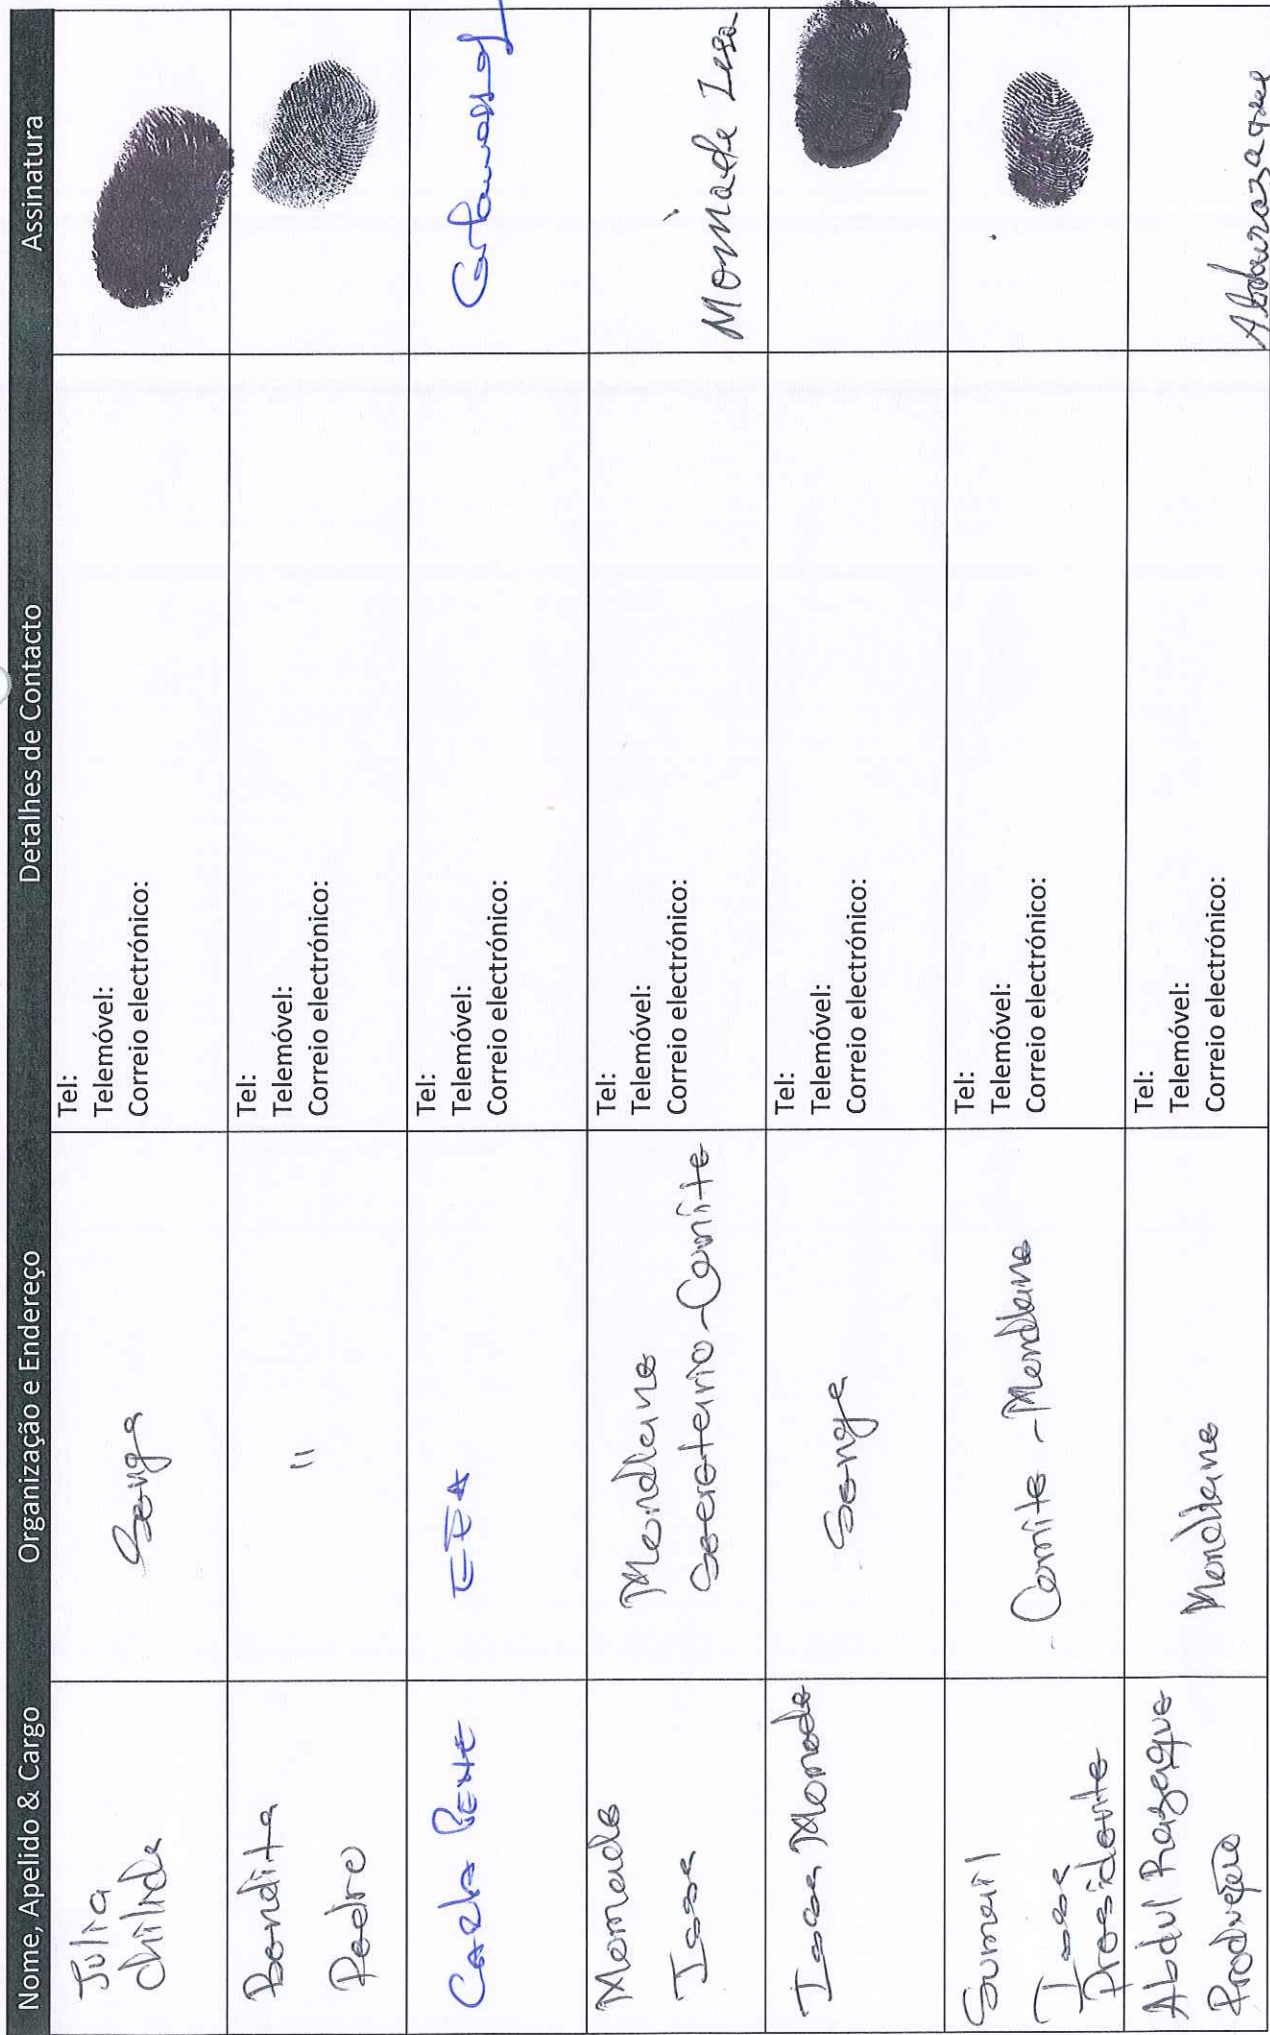 Nome, Apelido & Cargo
Organização e Endereço
Detalhes de Contacto
Assinatura
Julia
Songa
Tel:
Telemóvel:
Correio electrónico:
Bendita
Pedro
"
Tel:
Telemóvel:
Correio electrónico:
Carla
Tel:
Telemóvel:
Correio electrónico:
Momade
Issa
Secretario - Comite
Tel:
Telemóvel:
Correio electrónico:
Momade Issa
Issa Momade
Songa
Tel:
Telemóvel:
Correio electrónico:
Sumail
Issa
Presidente
Comite -
Tel:
Telemóvel:
Correio electrónico:
Abdul Razaque
Produção
Tel:
Telemóvel:
Correio electrónico: